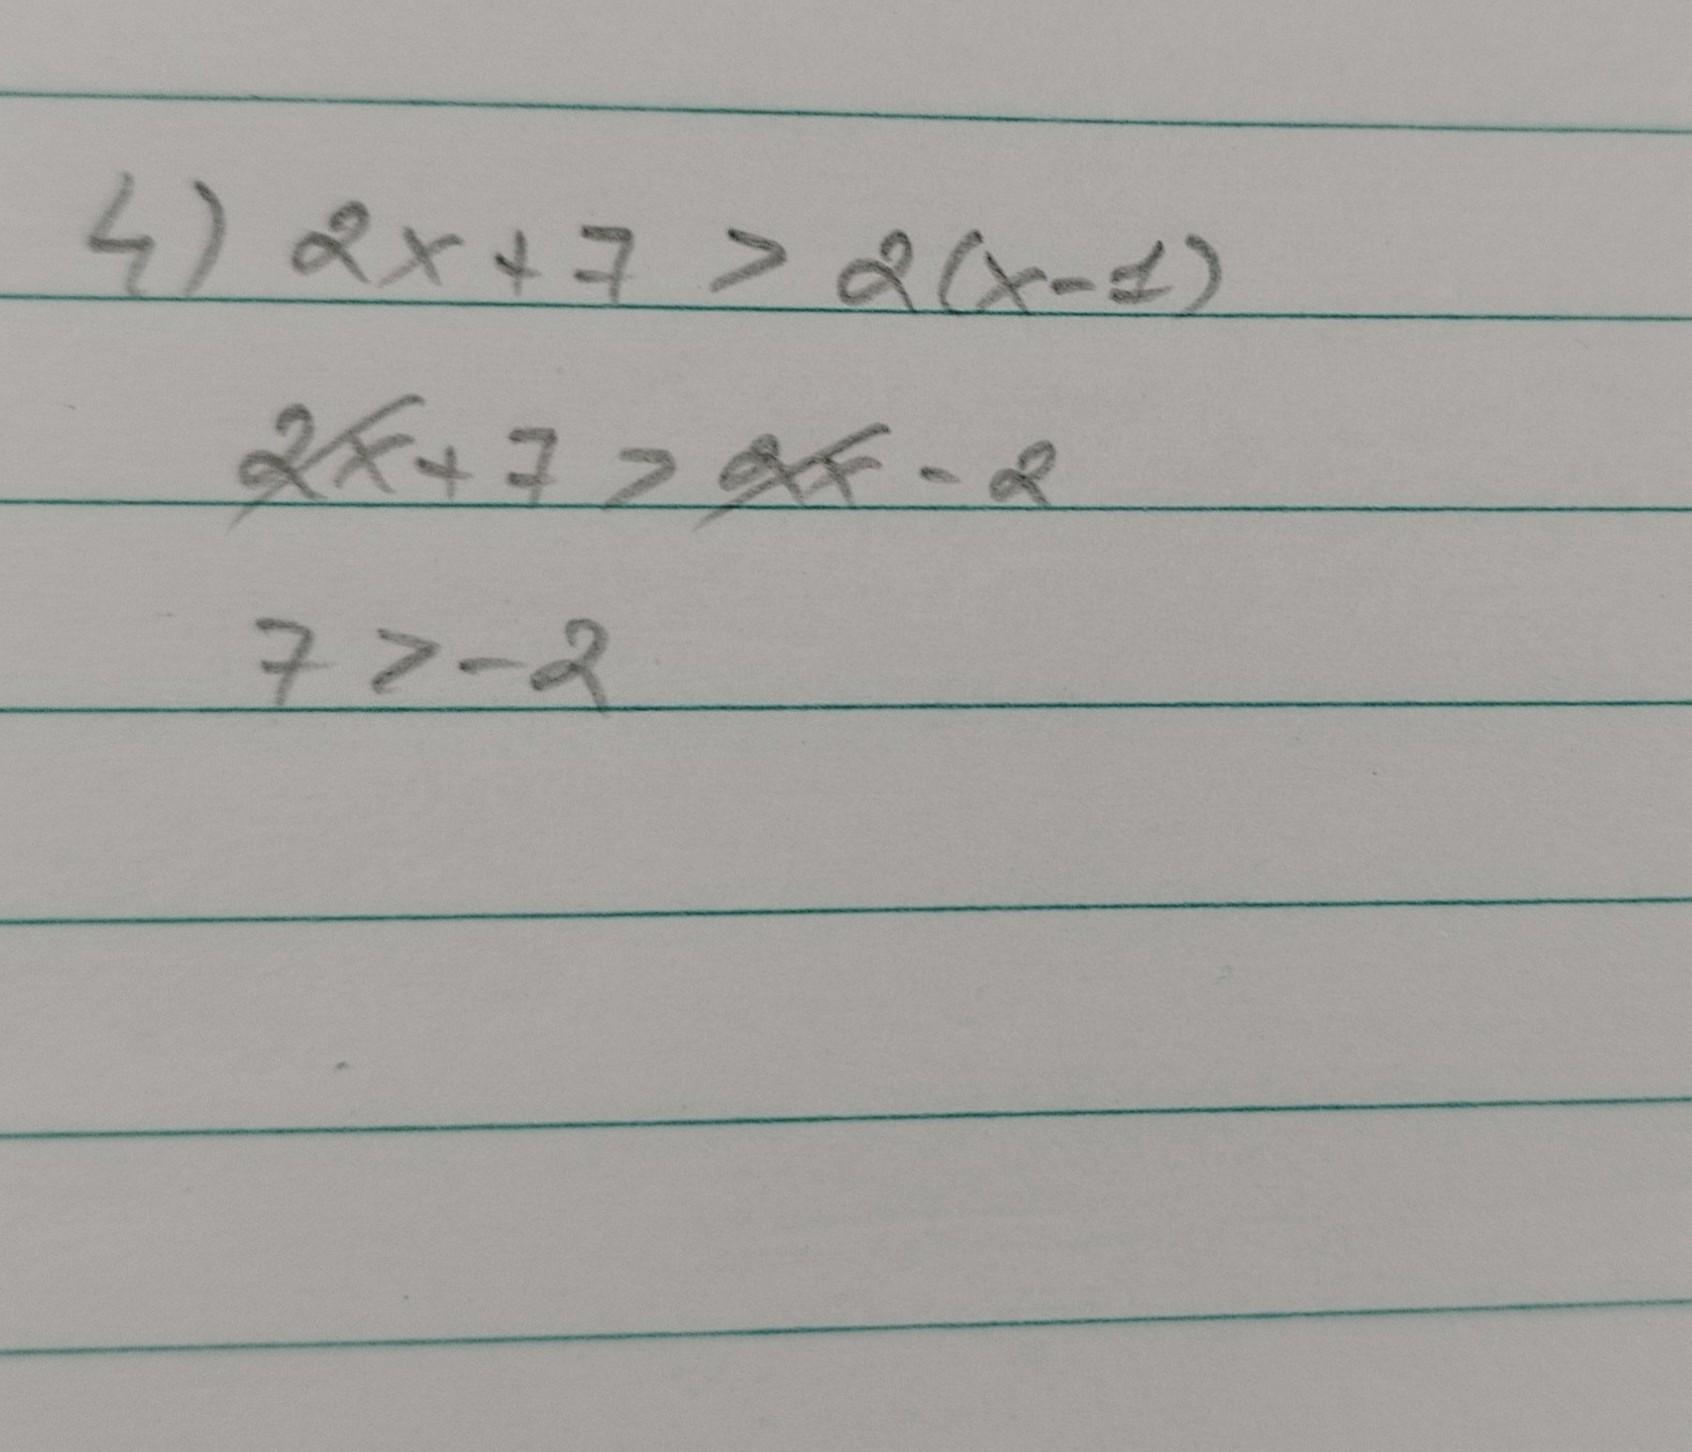 4) 2x + 7 > 2(x-1)
2x + 7 > 2x - 2
7 > -2